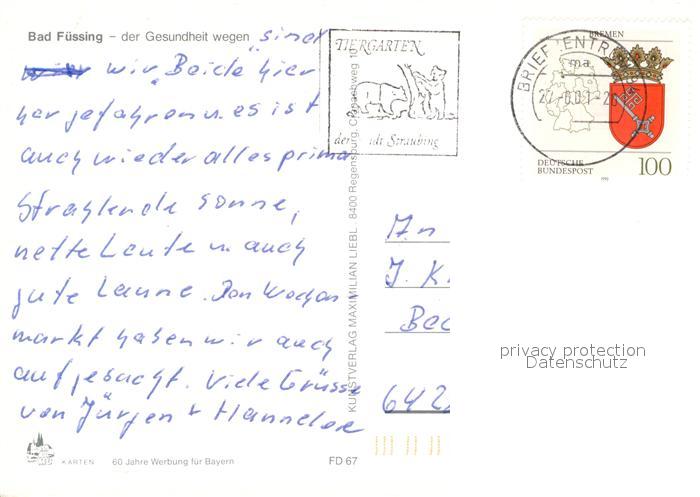 Bad Füssing – der Gesundheit wegen "sind
wir Beide hier
her gefahren u. es ist
auch wieder alles prima
Strahlende Sonne,
nette Leute u. auch
gute Laune. Den Wochen
markt haben wir auch
aufgesucht. Viele Grüsse
von Jürgen + Hannelore
KARTEN 60 Jahre Werbung für Bayern FD 67
KUNSTVERLAG MAXIMILIAN LIEBL 8400 Regensburg, Cranachweg 10
TIERGARTEN
der Stadt Straubing
BRIEFZENTRUM
BREMEN
DEUTSCHE
BUNDESPOST 100
An
J. K.
642
privacy protection
Datenschutz